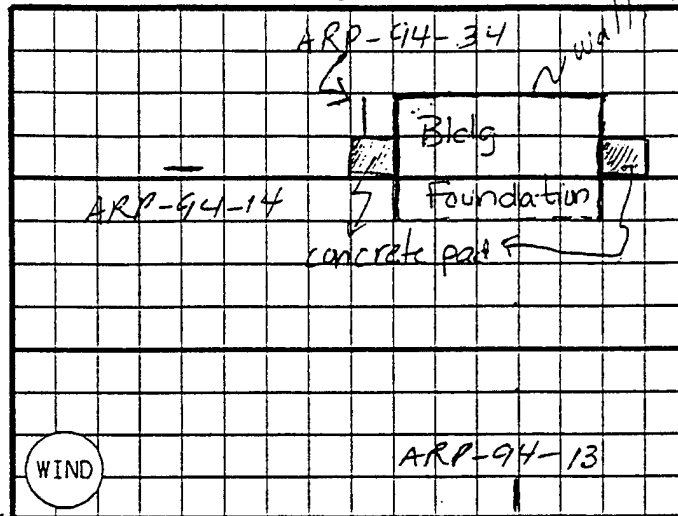 ARP-94-34
wall
Bldg
Foundation
ARP-94-14
concrete pad
ARP-94-13
WIND